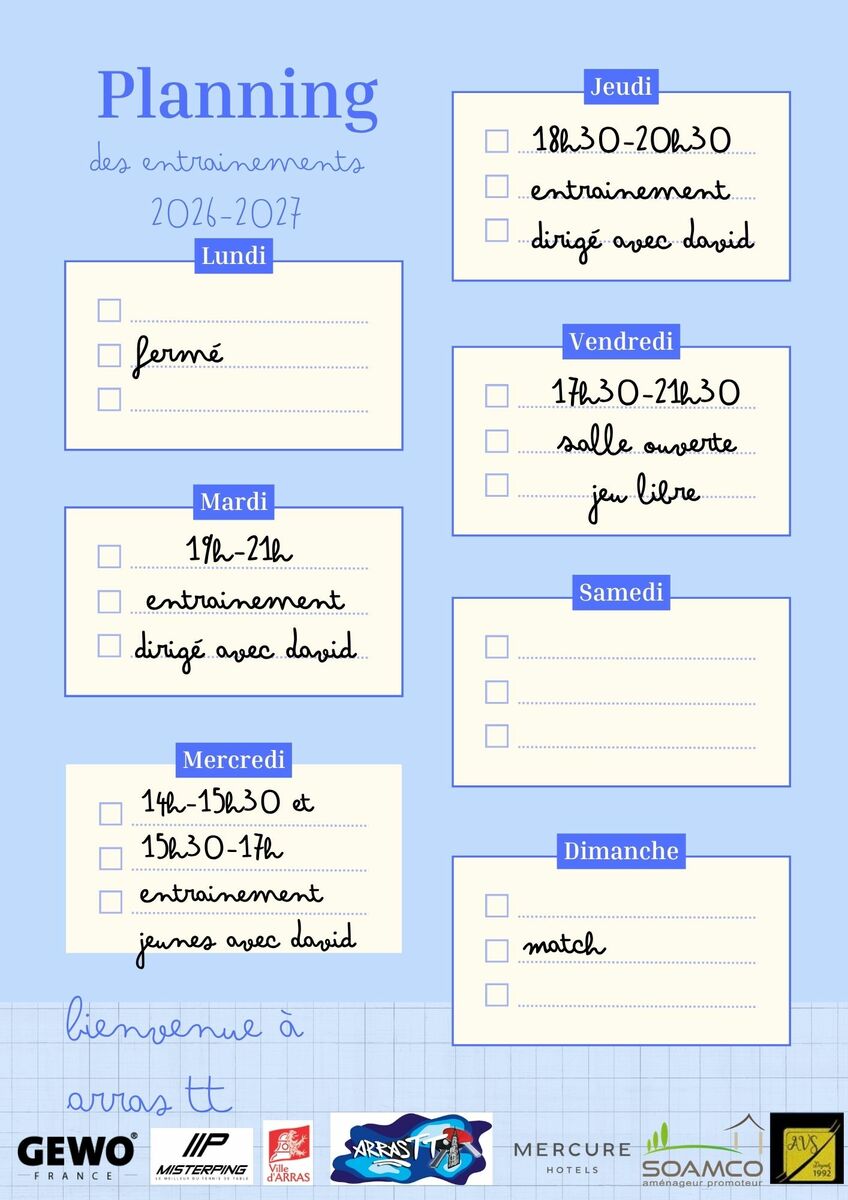 Planning
des entrainements
2026-2027
Lundi
fermé
Mardi
19h-21h
entrainement
dirigé avec david
Mercredi
14h-15h30 et
15h30-17h
entrainement
jeunes avec david
Jeudi
18h30-20h30
entrainement
dirigé avec david
Vendredi
17h30-21h30
salle ouverte
jeu libre
Samedi
Dimanche
match
bienvenue à
arras tt
GEWO®
FRANCE
MISTERPING
LE MEILLEUR DU TENNIS DE TABLE
Ville
d'ARRAS
ARRAS TT
MERCURE
HOTELS
SOAMCO
aménageur promoteur
AVS
Depuis
1992